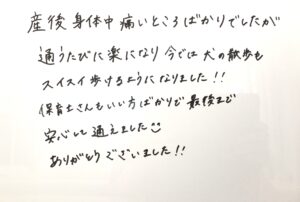 産後身体中痛いところばかりでしたが
通うたびに楽になり今では犬の散歩も
スイスイ歩けるようになりました!!
保育士さんもいい方ばかりで最後まで
安心して通えました☺
ありがとうございました!!